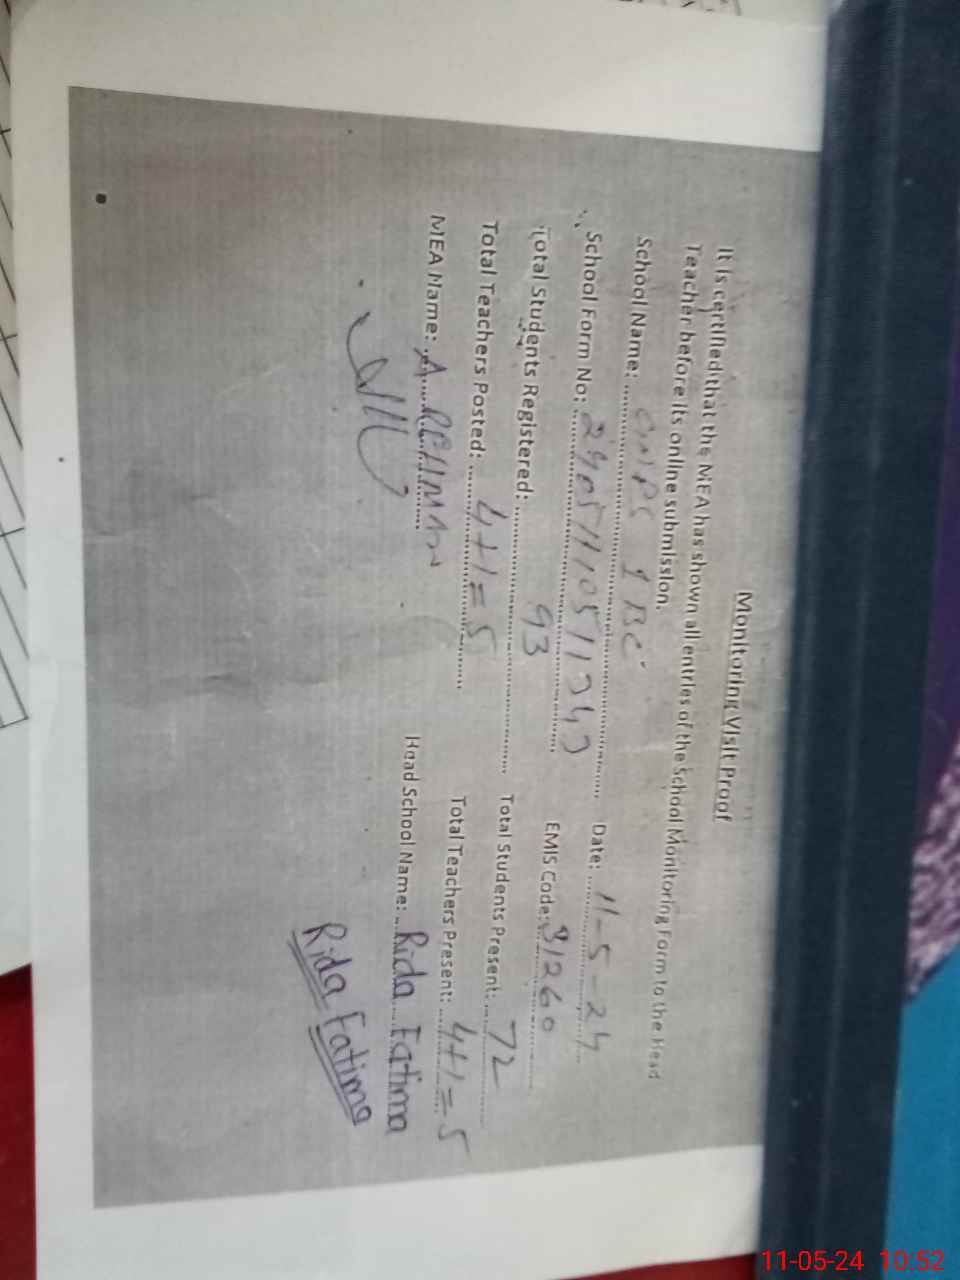 Monitoring Visit Proof
It is certified that the MEA has shown all entries of the School Monitoring Form to the Head
Teacher before its online submission.
School Name: GMPS 1 BC Date: 11-5-24
School Form No: EMIS Code: 31260
Total Students Registered: 93 Total Students Present: 72
Total Teachers Posted: 4+1=5 Total Teachers Present: 4+1=5
MEA Name: A. REHMAN Head School Name: Rida Fatima
Rida Fatima
11-05-24 10:52